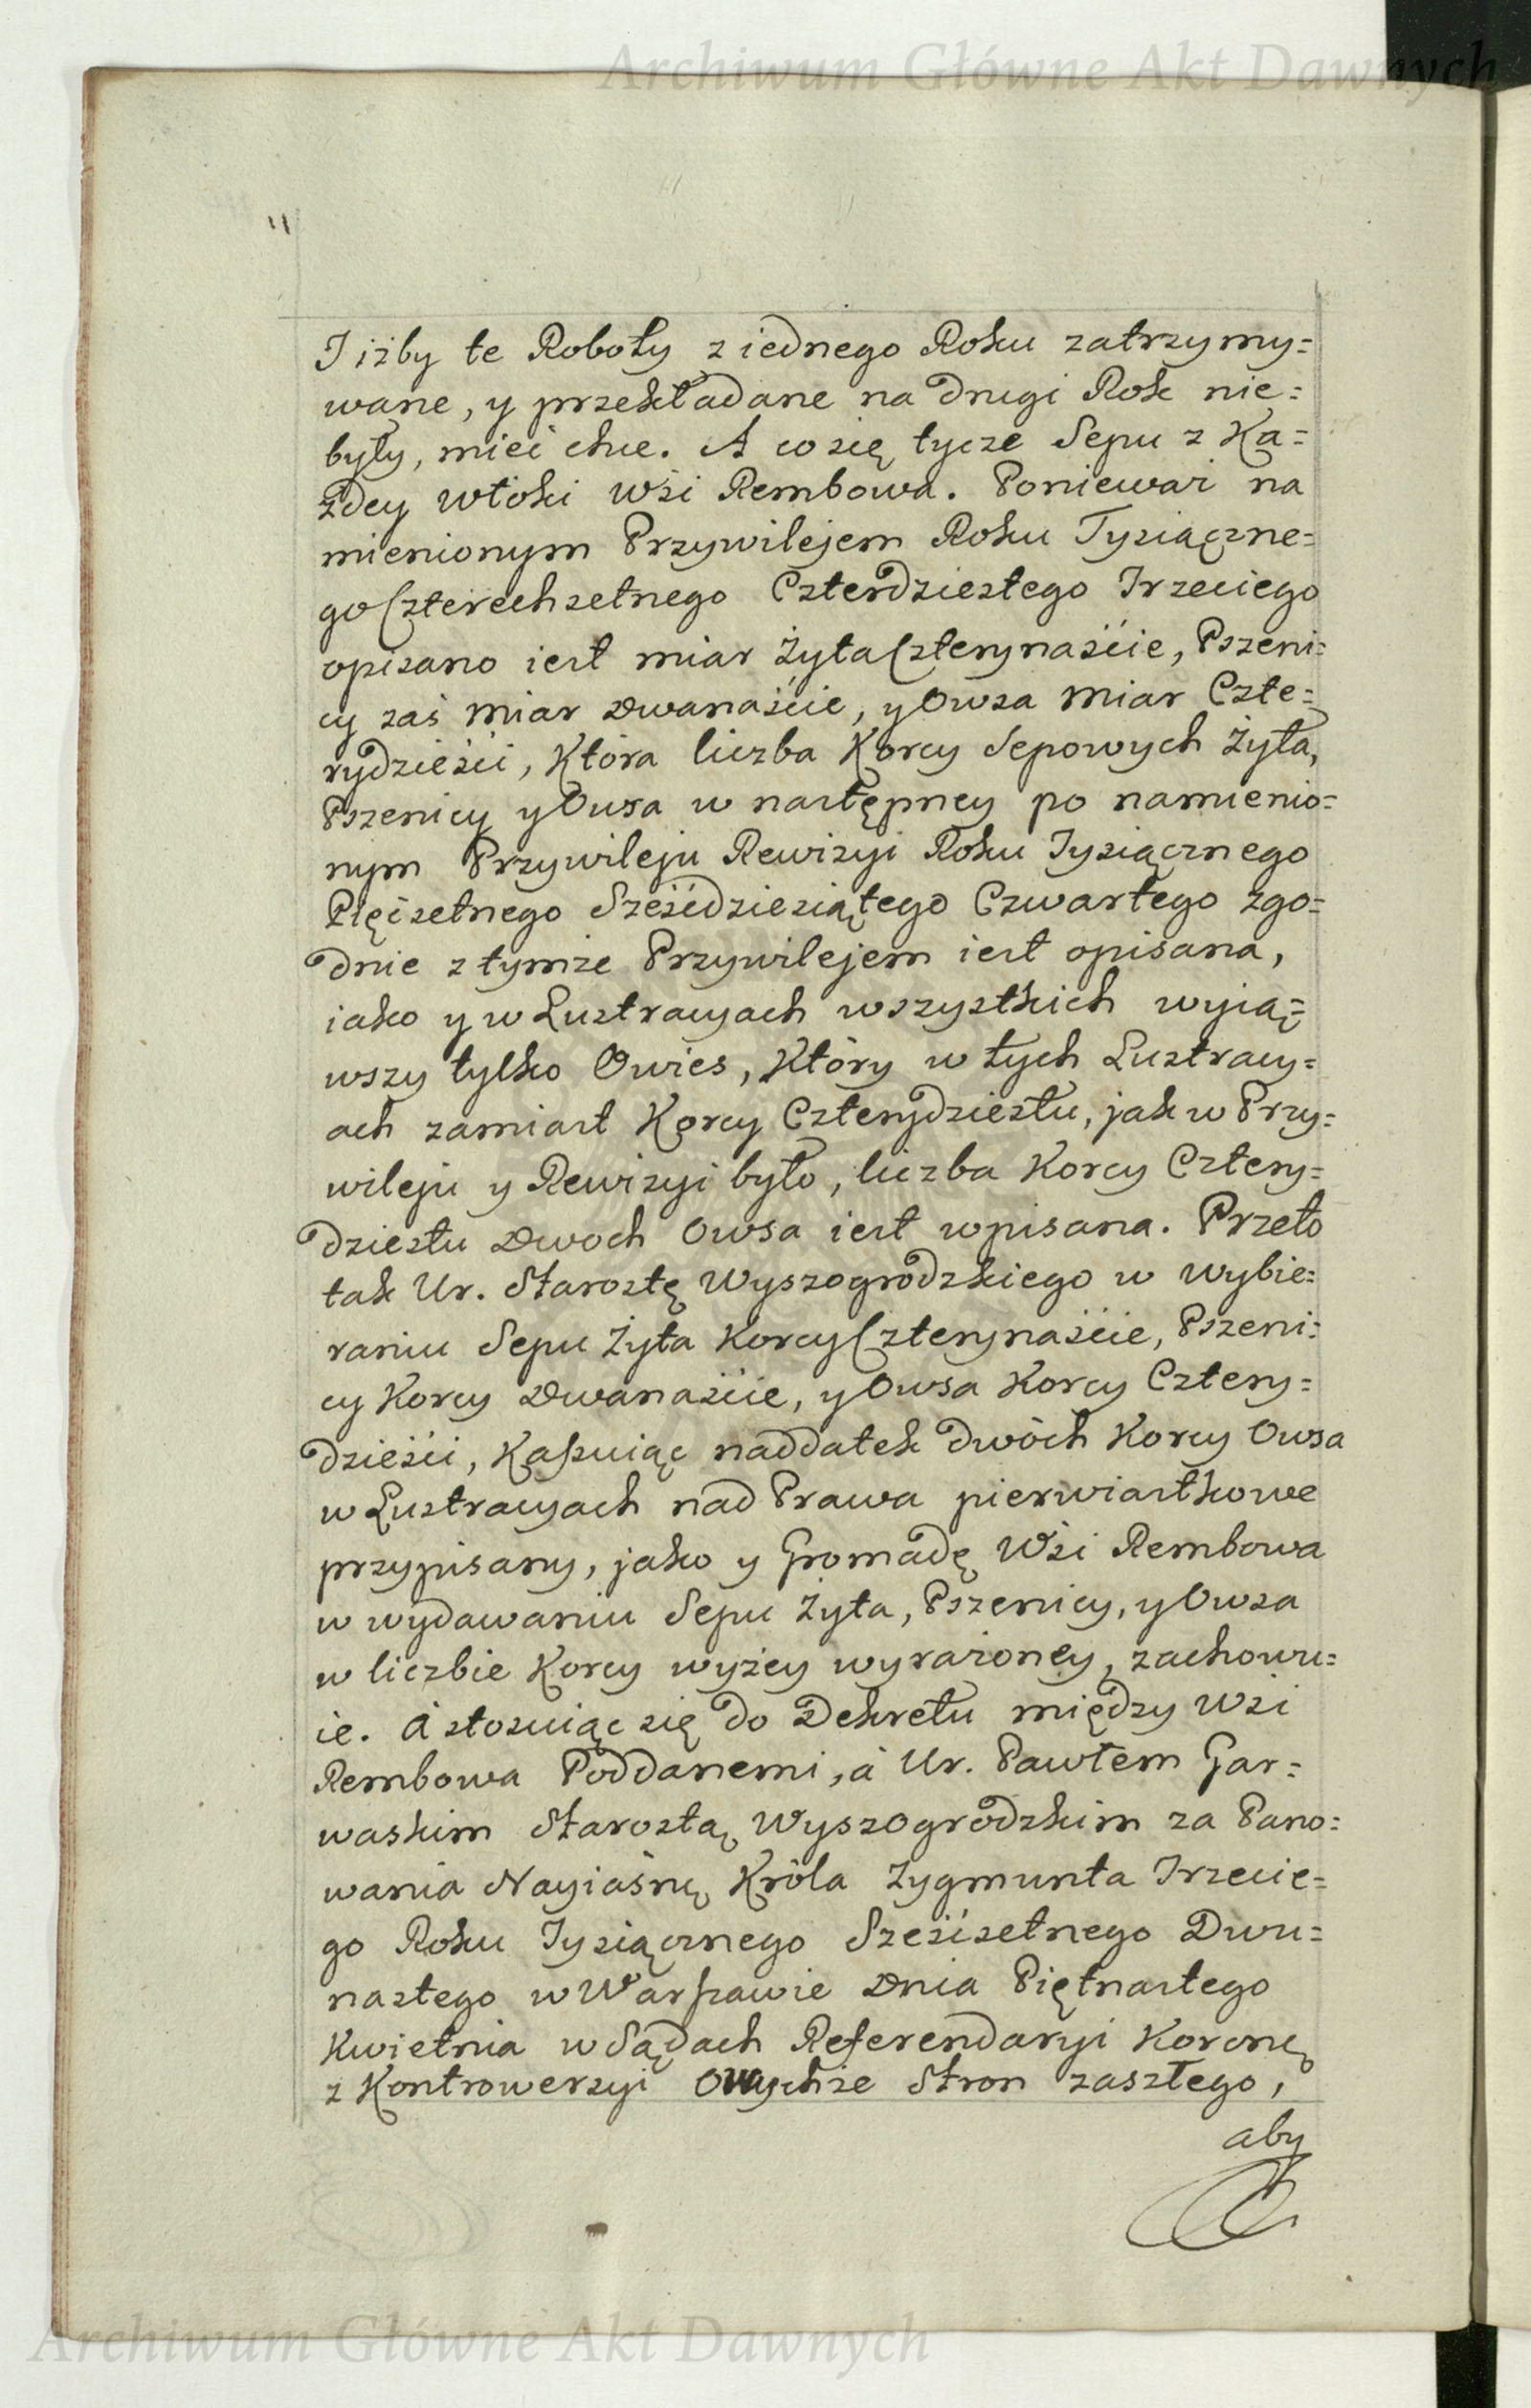 Archiwum Główne Akt Dawnych
I iżby te Roboty z iednego Roku zatrzymy=
wane, y przekładane na drugi Rok nie=
były, mieć chce. A co się tycze Sepu z Ka=
żdey Włoki Wsi Rembowa. Ponieważ na
mienionym Przywilejem Roku Tysiączne=
go Czterechsetnego Czterdziestego Trzeciego
opisano iest miar Żyta Czternaście, Pszeni=
cy zaś miar dwanaście, y Owsa miar Czte=
rydzieści, Która liczba Korcy Sepowych Żyta,
Pszenicy y Owsa w następney po namienio=
nym Przywileju Rewizyi Roku Tysiącznego
Pięćsetnego Sześćdziesiątego Czwartego zgo=
dnie z tymże Przywilejem iest opisana,
iako y w Lustracyach wszystkich wyią=
wszy tylko Owies, Który w tych Lustracy=
ach zamiast Korcy Czterydziestu, jak w Przy=
wileju y Rewizyi było, liczba Korcy Cztery=
dziestu Dwoch Owsa iest wpisana. Przeto
tak Ur. Starostę Wyszogrodzkiego w wybie=
raniu Sepu Żyta Korcy Czterynaście, Pszeni=
cy Korcy Dwanaście, y Owsa Korcy Cztery=
dzieści, Kassuiąc naddatek dwóch Korcy Owsa
w Lustracyach nad Prawa pierwiastkowe
przypisany, jako y Gromadę Wsi Rembowa
w wydawaniu Sepu Żyta, Pszenicy, y Owsa
w liczbie Korcy wyżey wyrażoney, zachowu=
ie. A stosuiąc się do Dekretu między Wsi
Rembowa Poddanemi, á Ur. Pawłem Gar=
waskim Starostą Wyszogrodzkim za Pano=
wania Nayiaśnę Króla Zygmunta Trzecie=
go Roku Tysiącznego Sześćsetnego Dwu=
nastego w Warszawie Dnia Piętnastego
Kwietnia w Sądach Referendaryi Koronę
z Kontrowersyi Stron zaszłego,
aby
Archiwum Główne Akt Dawnych